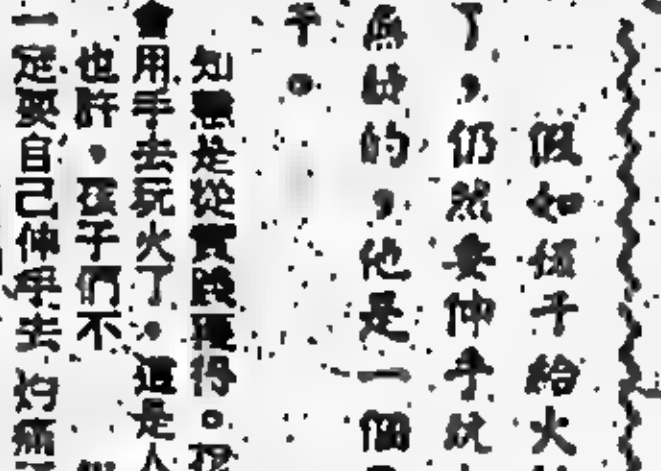 假如 子給火
了，仍然要伸手
的，他是一個
子。
知 是從實踐獲得。
會用手去玩火了。這是人
也許，孩子們不
一定要自己伸手去灼痛